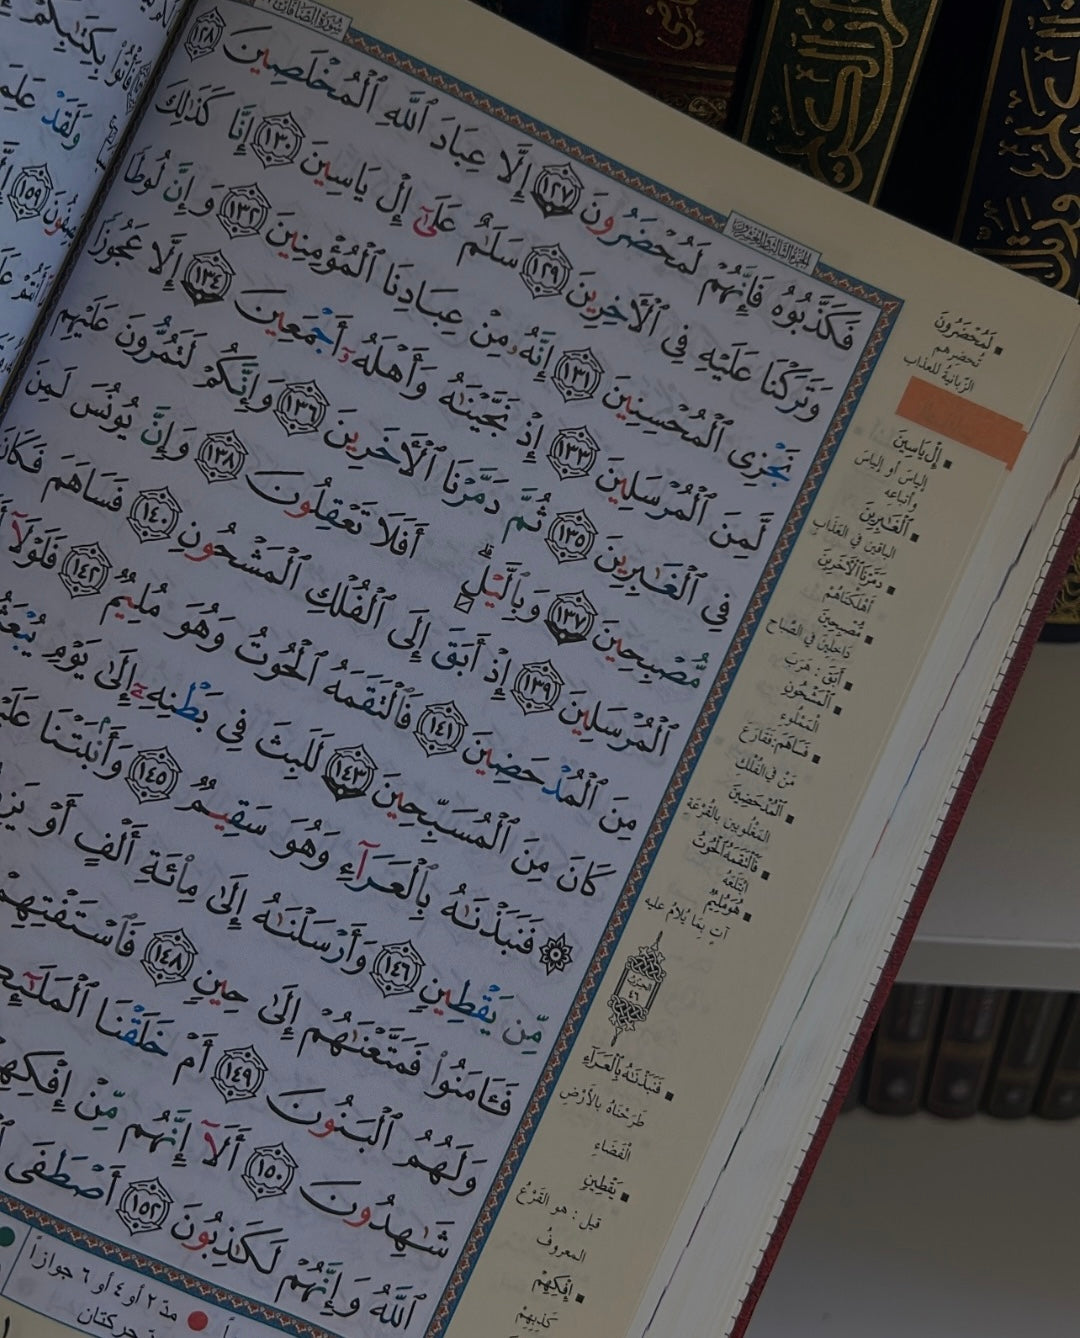 سُورَةُ الصَّافَّاتِ
الجُزْءُ الثَّالِثُ وَالعِشْرُونَ
فَكَذَّبُوهُ فَإِنَّهُمْ لَمُحْضَرُونَ ١٢٧ إِلَّا عِبَادَ ٱللَّهِ ٱلْمُخْلَصِينَ ١٢٨
وَتَرَكْنَا عَلَيْهِ فِى ٱلْأَخِرِينَ ١٢٩ سَلَٰمٌ عَلَىٰٓ إِلْ يَاسِينَ ١٣٠ إِنَّا كَذَٰلِكَ
نَجْزِى ٱلْمُحْسِنِينَ ١٣١ إِنَّهُۥ مِنْ عِبَادِنَا ٱلْمُؤْمِنِينَ ١٣٢ وَإِنَّ لُوطًا
لَّمِنَ ٱلْمُرْسَلِينَ ١٣٣ إِذْ نَجَّيْنَٰهُ وَأَهْلَهُۥٓ أَجْمَعِينَ ١٣٤ إِلَّا عَجُوزًا
فِى ٱلْغَٰبِرِينَ ١٣٥ ثُمَّ دَمَّرْنَا ٱلْأَخَرِينَ ١٣٦ وَإِنَّكُمْ لَتَمُرُّونَ عَلَيْهِم
مُّصْبِحِينَ ١٣٧ وَبِٱلَّيْلِ أَفَلَا تَعْقِلُونَ ١٣٨ وَإِنَّ يُونُسَ لَمِنَ
ٱلْمُرْسَلِينَ ١٣٩ إِذْ أَبَقَ إِلَى ٱلْفُلْكِ ٱلْمَشْحُونِ ١٤٠ فَسَاهَمَ فَكَانَ
مِنَ ٱلْمُدْحَضِينَ ١٤١ فَٱلْتَقَمَهُ ٱلْحُوتُ وَهُوَ مُلِيمٌ ١٤٢ فَلَوْلَآ
كَانَ مِنَ ٱلْمُسَبِّحِينَ ١٤٣ لَلَبِثَ فِى بَطْنِهِۦٓ إِلَىٰ يَوْمِ
۞ فَنَبَذْنَٰهُ بِٱلْعَرَآءِ وَهُوَ سَقِيمٌ ١٤٥ وَأَنۢبَتْنَا
مِّن يَقْطِينٍ ١٤٦ وَأَرْسَلْنَٰهُ إِلَىٰ مِا۟ئَةِ أَلْفٍ أَوْ
فَـَٔامَنُوا۟ فَمَتَّعْنَٰهُمْ إِلَىٰ حِينٍ ١٤٨ فَٱسْتَفْتِهِمْ
وَلَهُمُ ٱلْبَنُونَ ١٤٩ أَمْ خَلَقْنَا
شَٰهِدُونَ ١٥٠ أَلَآ إِنَّهُم مِّنْ
ٱللَّهُ وَإِنَّهُمْ لَكَٰذِبُونَ ١٥٢ أَصْطَفَى
لَمُحْضَرُونَ
تُحضِرهم
الزَّبانيةُ للعذاب
إِلْ يَاسِينَ
إلياسَ أو إلياسَ
وأتباعه
ٱلْغَٰبِرِينَ
الباقين في العَذاب
دَمَّرْنَا ٱلْأَخَرِينَ
أهْلَكْنَاهُمْ
مُصْبِحِينَ
دَاخِلِينَ في الصَّباح
أَبَقَ: هَرَبَ
ٱلْمَشْحُونِ
المَمْلُوءِ
فَسَاهَمَ: فقَارَعَ
مَنْ في الفُلْكِ
ٱلْمُدْحَضِينَ
المَغْلُوبين بالقُرْعَة
فَٱلْتَقَمَهُ ٱلْحُوتُ
ابْتَلَعَهُ
هُوَ مُلِيمٌ
آتٍ بِمَا يُلامُ عليه
الحِزْبُ
٤٦
فَنَبَذْنَٰهُ بِٱلْعَرَآءِ
طَرَحْنَاهُ بالأرْضِ
الفَضَاءِ
يَقْطِينٍ
قيل: هو القَرْعُ
المعروفُ
إِفْكِهِمْ
كَذِبِهِمْ
مدّ ٢ أو ٤ أو ٦ جوازاً
حركتان
وَلَقَدْ
١٥٩